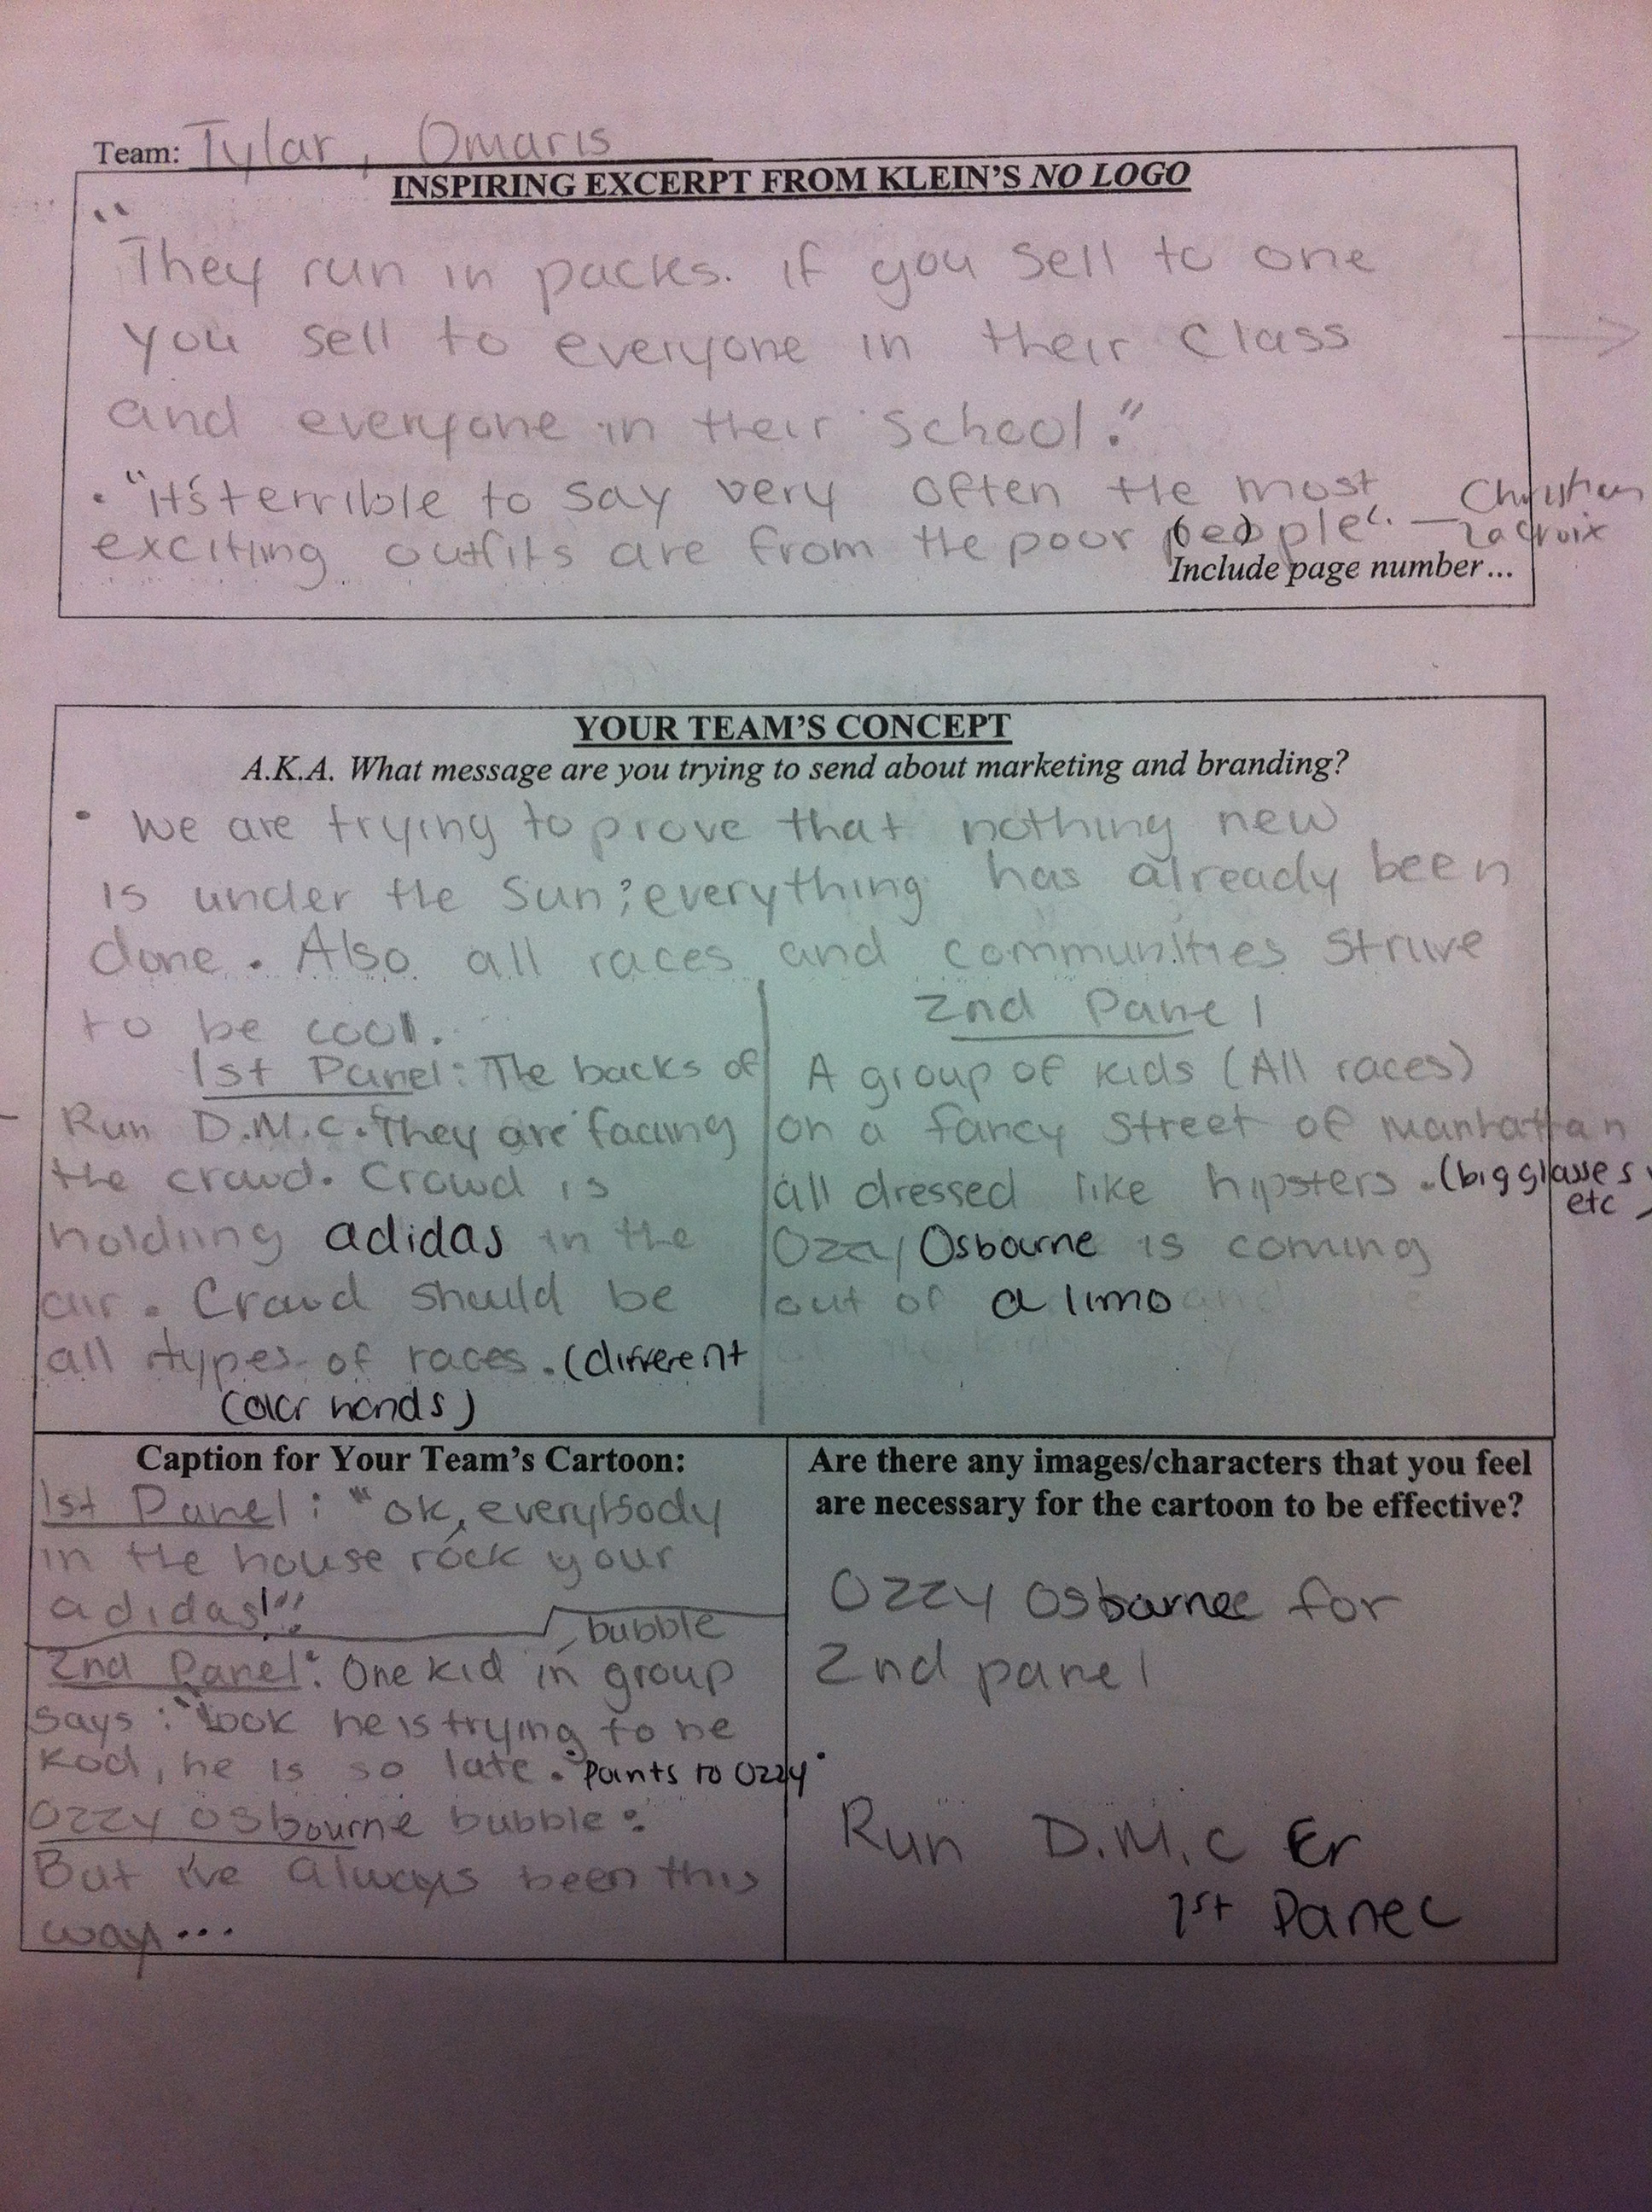 Team: Tylar, Omaris
INSPIRING EXCERPT FROM KLEIN'S NO LOGO
"They run in packs. if you sell to one
you sell to everyone in their class
and everyone in their school."
• "it's terrible to say very often the most
exciting outfits are from the poor people". — Christian Lacroix
Include page number...
YOUR TEAM'S CONCEPT
A.K.A. What message are you trying to send about marketing and branding?
• We are trying to prove that nothing new
is under the sun; everything has already been
done. Also all races and communities strive
to be cool.
1st Panel: The backs of
Run D.M.C. They are facing
the crowd. Crowd is
holding adidas in the
air. Crowd should be
all types of races. (different
color hands)
2nd Panel
A group of kids (All races)
on a fancy street of manhattan
all dressed like hipsters. (big glasses,
etc)
Ozzy Osbourne is coming
out of a limo
Caption for Your Team's Cartoon:
1st Panel: "ok, everybody
in the house rock your
adidas!"
bubble
2nd Panel: One kid in group
says: "look he is trying to be
kool, he is so late. *Points to Ozzy*
Ozzy Osbourne bubble:
But i've always been this
way...
Are there any images/characters that you feel
are necessary for the cartoon to be effective?
Ozzy Osbourne for
2nd panel
Run D.M.C for
1st Panel